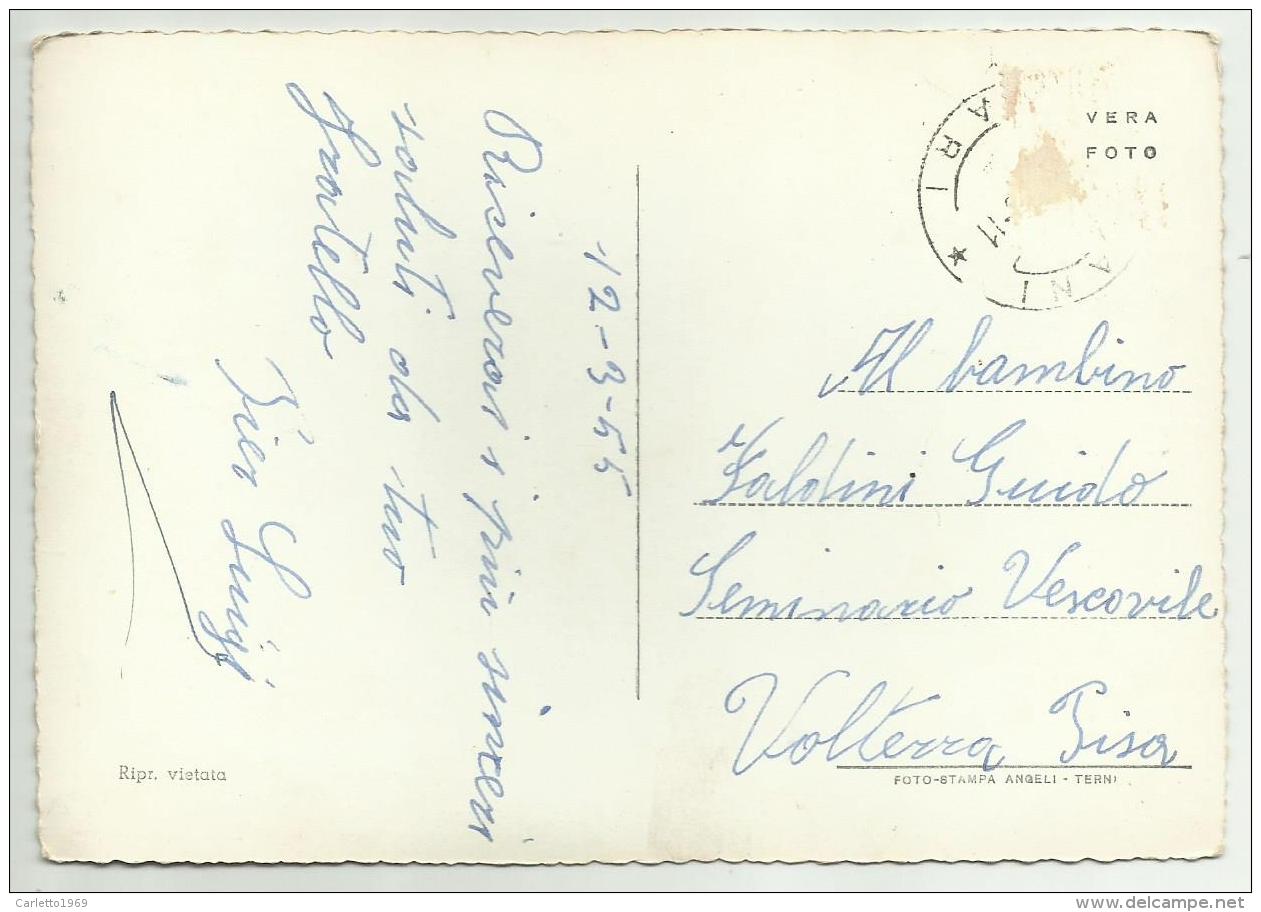 12-3-55
Riceverai i più sinceri
saluti da tuo
fratello
Pier Luigi
Ripr. vietata
VERA
FOTO
ARI
ANI
Al bambino
Faldini Guido
Seminario Vescovile
Volterra Pisa
FOTO-STAMPA ANGELI - TERNI
Carletto1969
www.delcampe.net